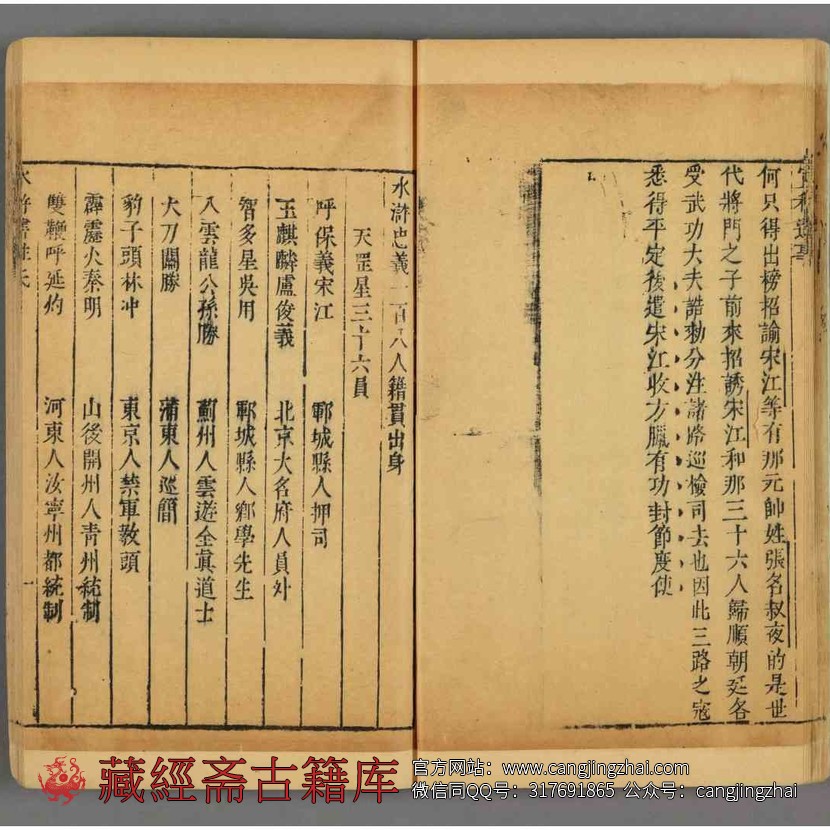 何只得出榜招諭宋江等有那元帥姓張名叔夜的是世
代將門之子前來招誘宋江和那三十六人歸順朝廷各
受武功大夫誥勑分注諸路巡檢司去也因此三路之寇
悉得平定後遣宋江收方臘有功封節度使
水滸忠義一百八人籍貫出身
天罡星三十六員
呼保義宋江 鄆城縣人押司
玉麒麟盧俊義 北京大名府人員外
智多星吳用 鄆城縣人鄉學先生
入雲龍公孫勝 薊州人雲遊全真道士
大刀關勝 蒲東人巡簡
豹子頭林冲 東京人禁軍教頭
霹靂火秦明 山後開州人青州統制
雙鞭呼延灼 河東人汝寧州都統制
一
藏經斋古籍库
官方网站：www.cangjingzhai.com
微信同QQ号：317691865 公众号：cangjingzhai